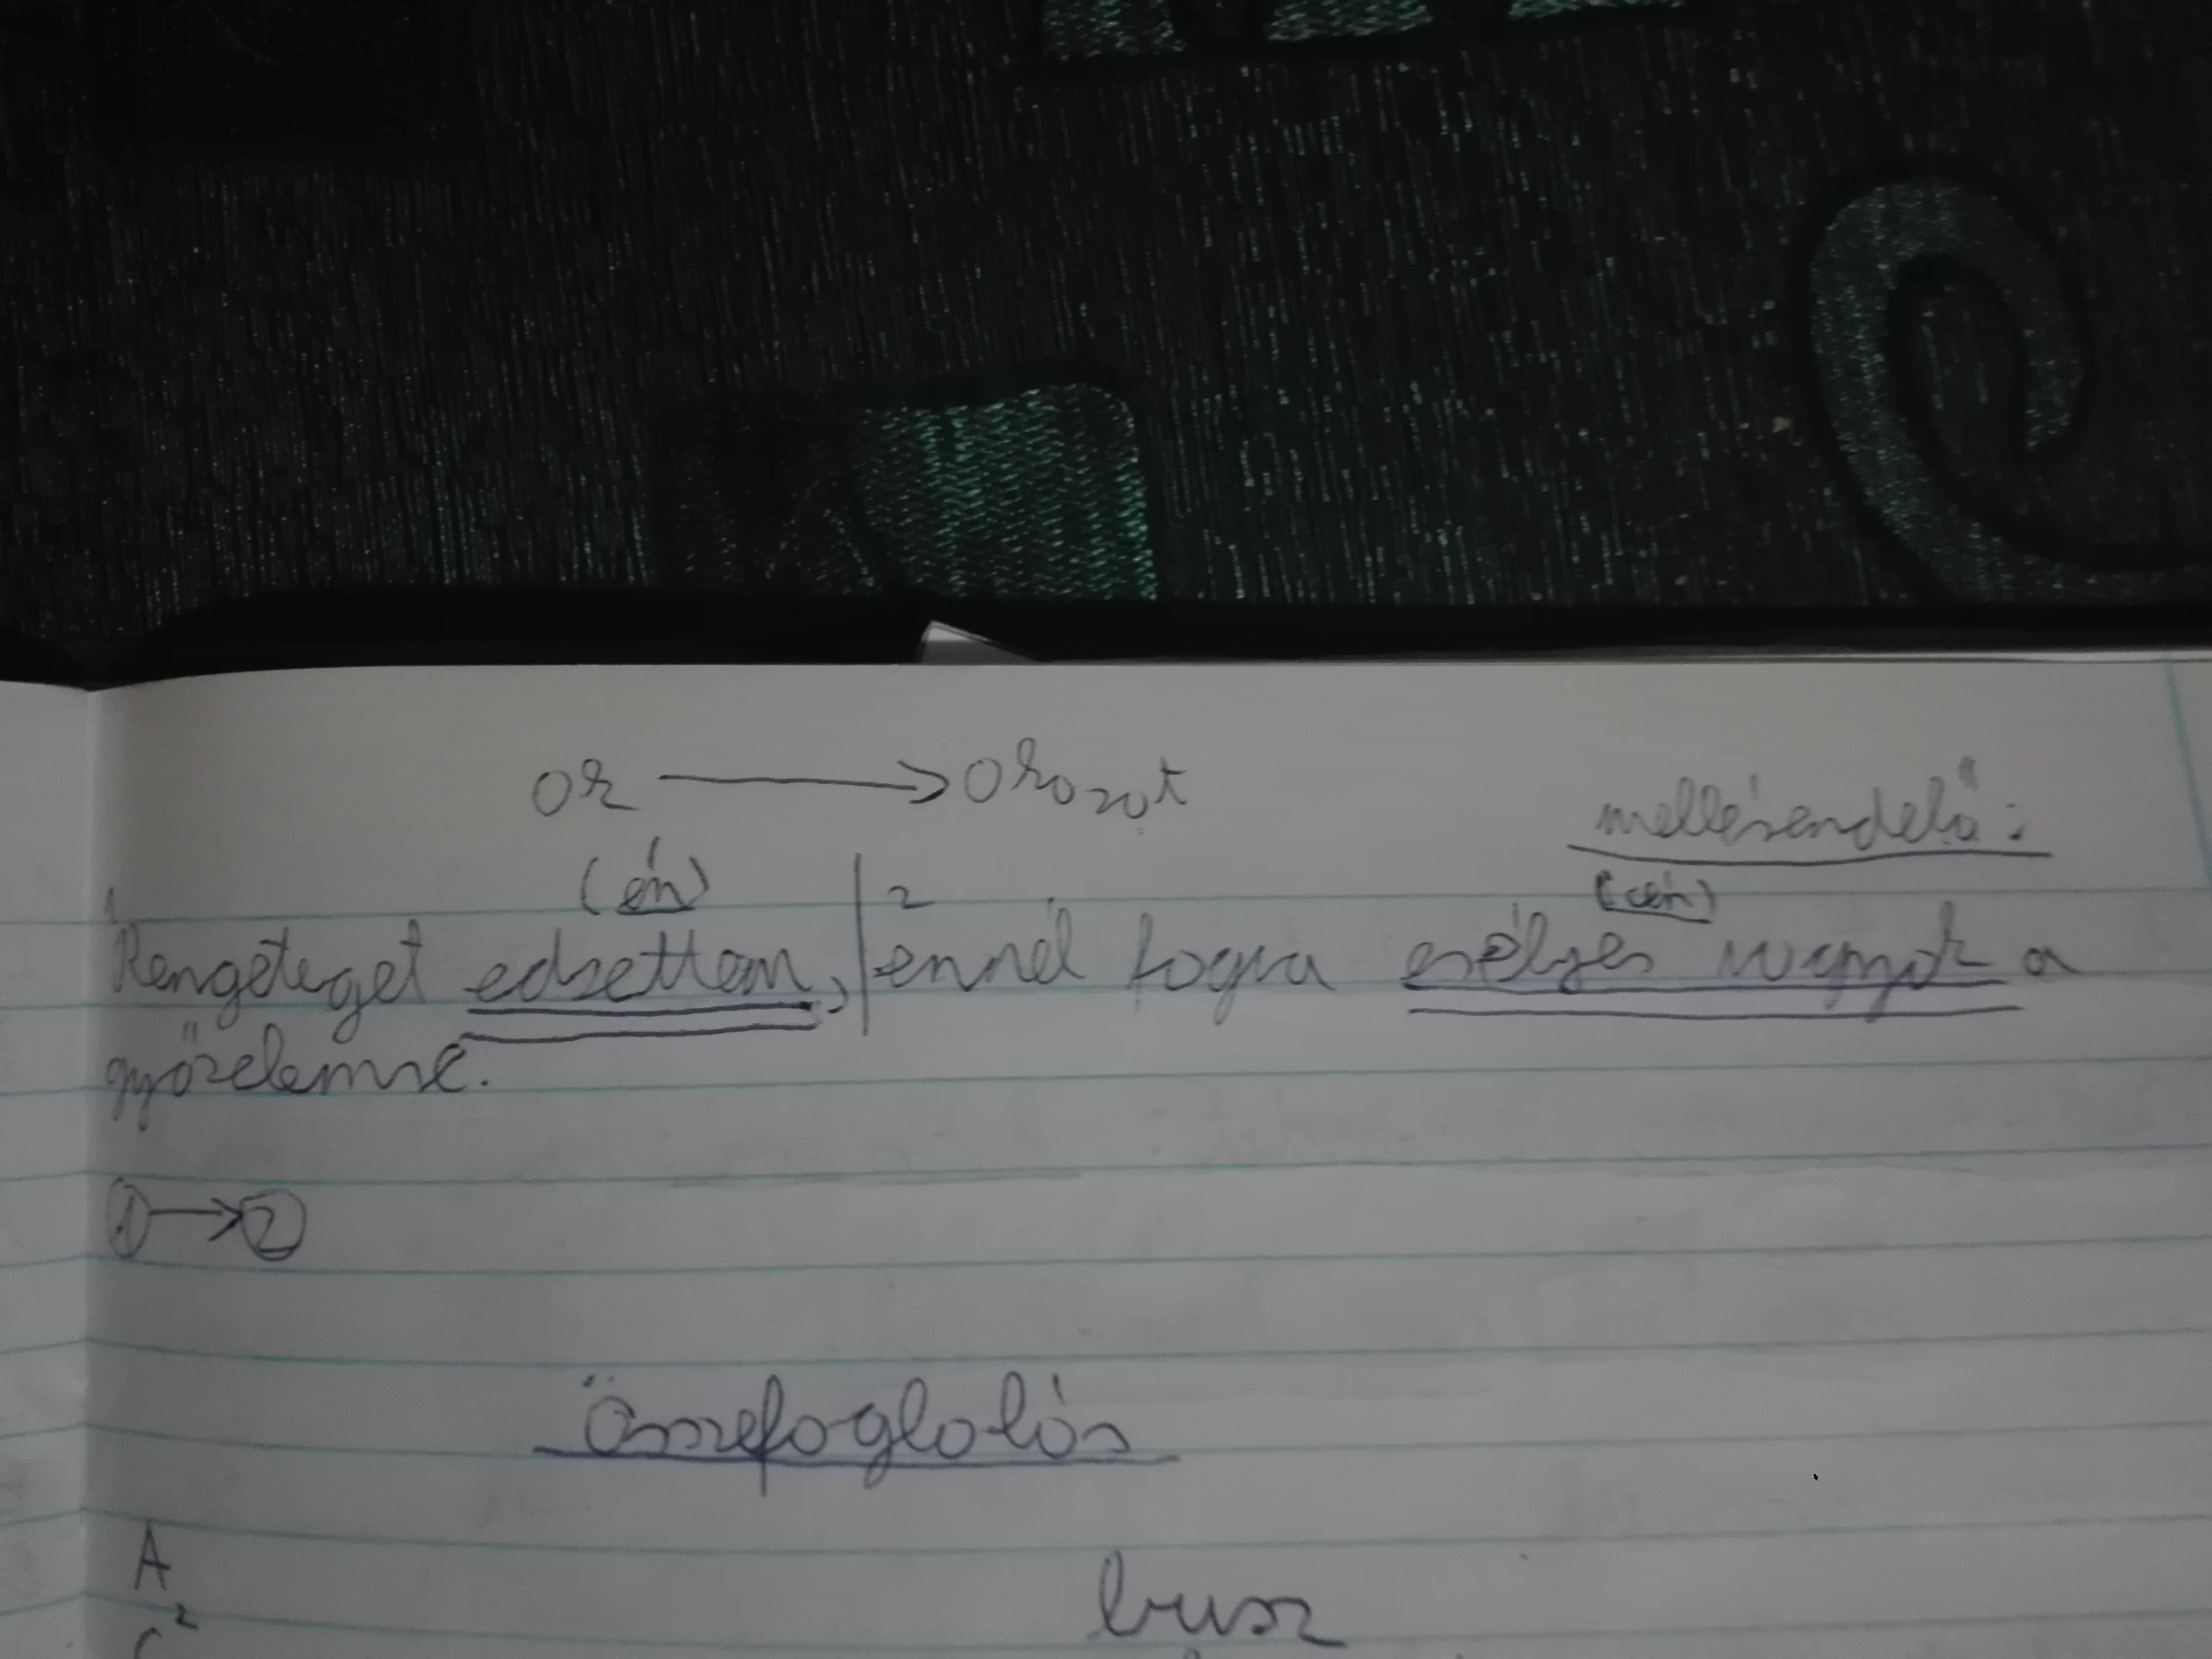 ok → okozat
mellérendelő:
(én) 2 (én)
1 Rengeteget edzettem, | ennél fogva esélyes vagyok a
győzelemre.
① → ②
Összefoglalás
A
2 busz